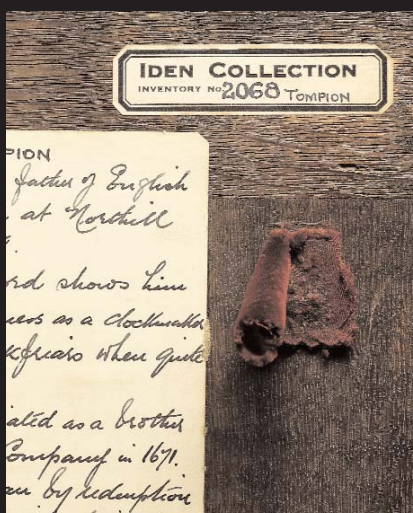 IDEN COLLECTION
INVENTORY No 2068 TOMPION
PION
father of English
at Northill
ord shows him
ness as a clockmaker
kfriars when quite
ated as a brother
Company in 1671.
an by redemption